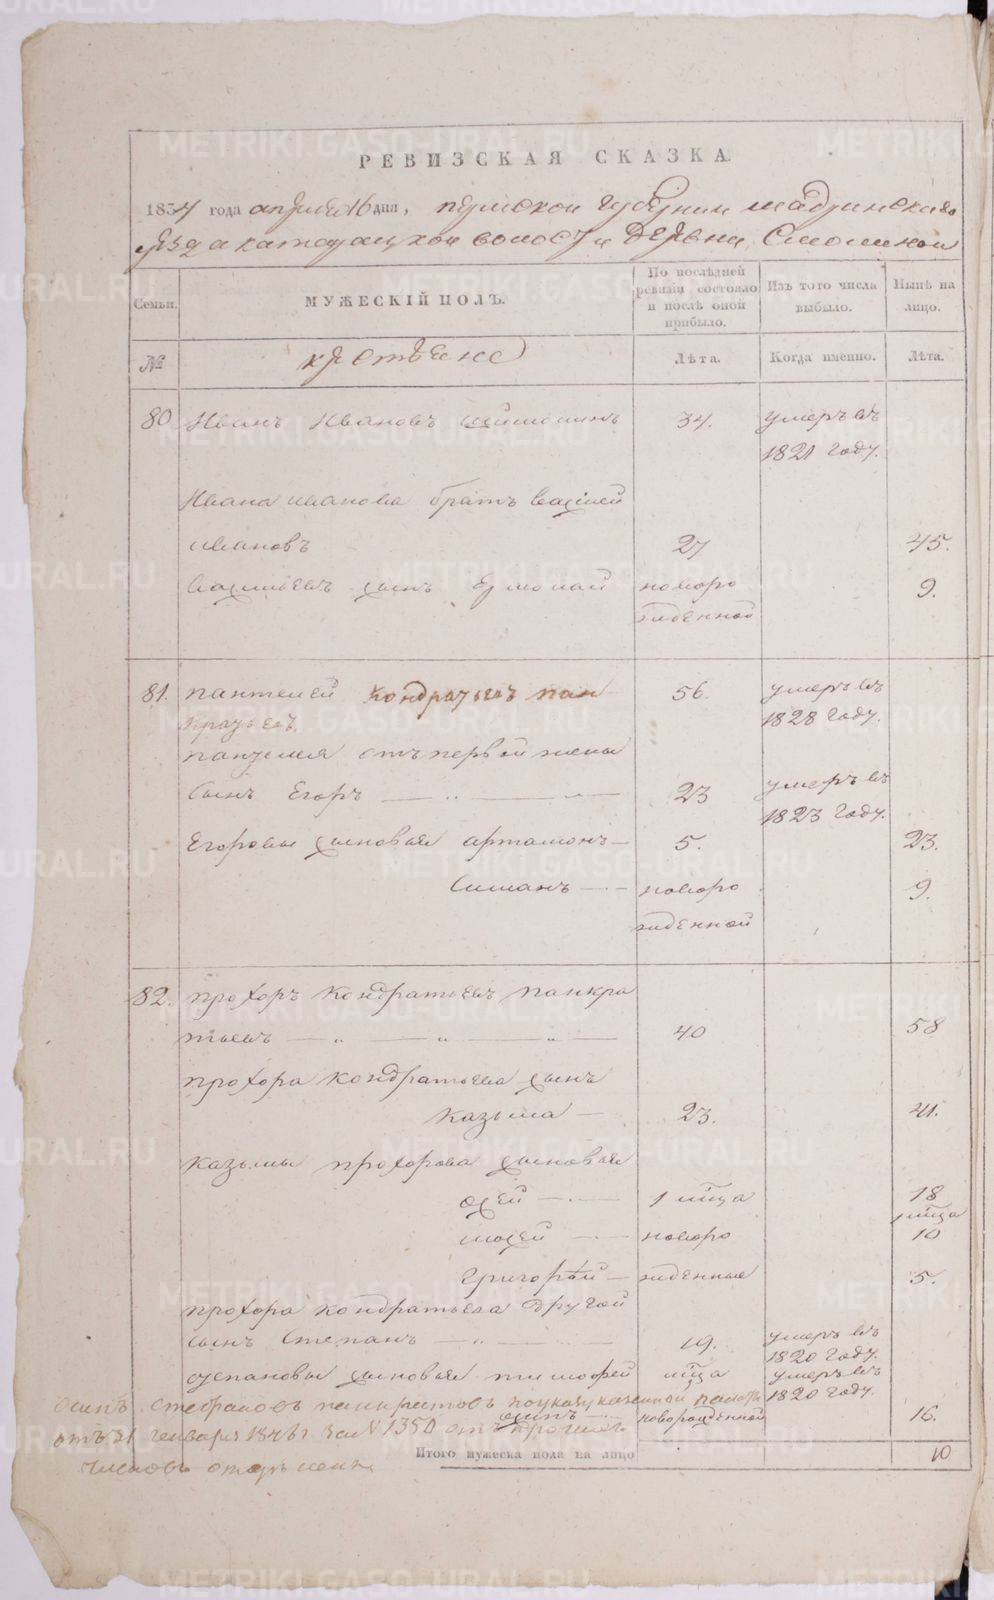 РЕВИЗСКАЯ СКАЗКА.
1834 года апреля 16 дня, пермской губернии шадринскаго
уезда катайцкой волости деревни
Семьи. МУЖЕСКІЙ ПОЛЪ. По послѣдней ревизіи состояло и послѣ оной прибыло. Изъ того числа выбыло. Нынѣ на лицо.
№ крестьяне Лѣта. Когда именно. Лѣта.
80 Иванъ Ивановъ 34. умеръ въ
1821 году.
Ивана иванова братъ василей
ивановъ 27 45.
васильевъ сынъ Ермолай новоро 9.
жденной
81. пантелей Кондратьевъ пан 56. умеръ въ
кратьевъ. 1828 году.
пантелея отъ первой жены
сынъ Егоръ — „ — „ — 23 умеръ въ
1823 году.
Егоровы сыновья артамонъ — 5. 23.
Симанъ — новоро 9.
жденной
82. прохоръ кондратьевъ панкра
тьевъ — „ — „ — „ — 40 58
прохора кондратьева сынъ
Казьма — 23. 41.
казьмы прохорова сыновья
— 1 мца 18
1 мца
мосей — новоро 10
Григорьй — жденныя 5.
прохора кондратьева другой
сынъ Степанъ — „ — 19. умеръ въ
1820 году.
степановы сыновья тимофей мца умеръ въ
1820 году.
осипъ — новорожденной 16.
осипъ степановъ панкратовъ по указу казенной палаты
отъ 31 генваря 184 за № 1350 отъ прочихъ
членовъ
Итого мужеска пола на лицо 10
METRIKI.GASO-URAL.RU